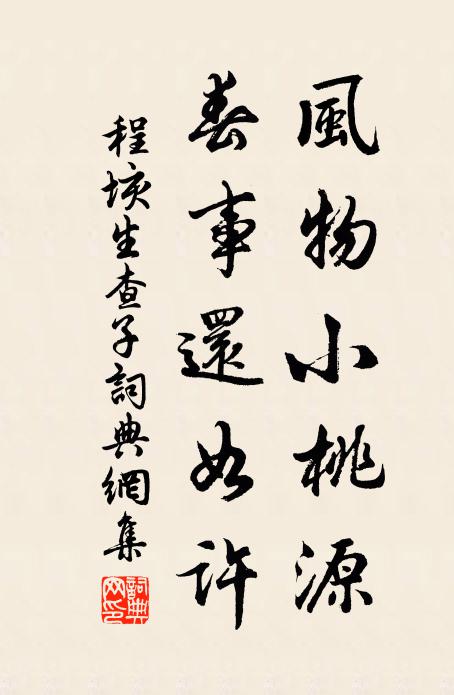 風物小桃源
春事還如許
程垓生查子詞典網集
詞典
网印